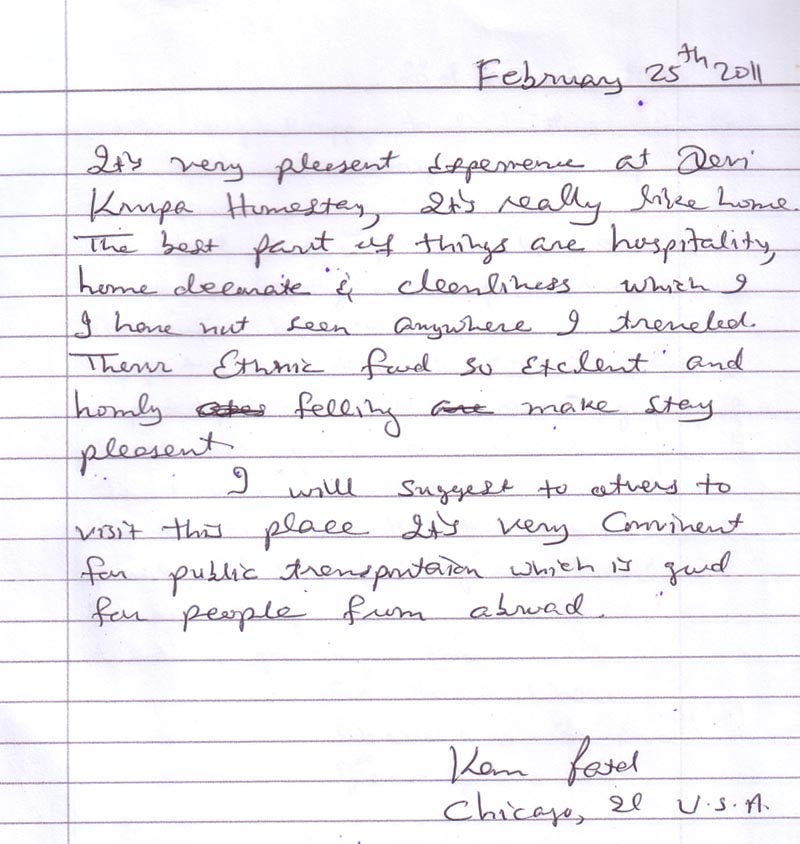 February 25th 2011
It's very pleasent experience at Devi
Krupa Homestay, It's really like home.
The best part of things are hospitality,
home decorate & cleanliness which I
I have not seen anywhere I traveled.
Their Ethnic food so Exclent and
homly felling are make stay
pleasent.
I will suggest to others to
visit this place It's very Convinent
for public transportaion which is good
for people from abroad.
Ken Patel
Chicago, Il U.S.A.